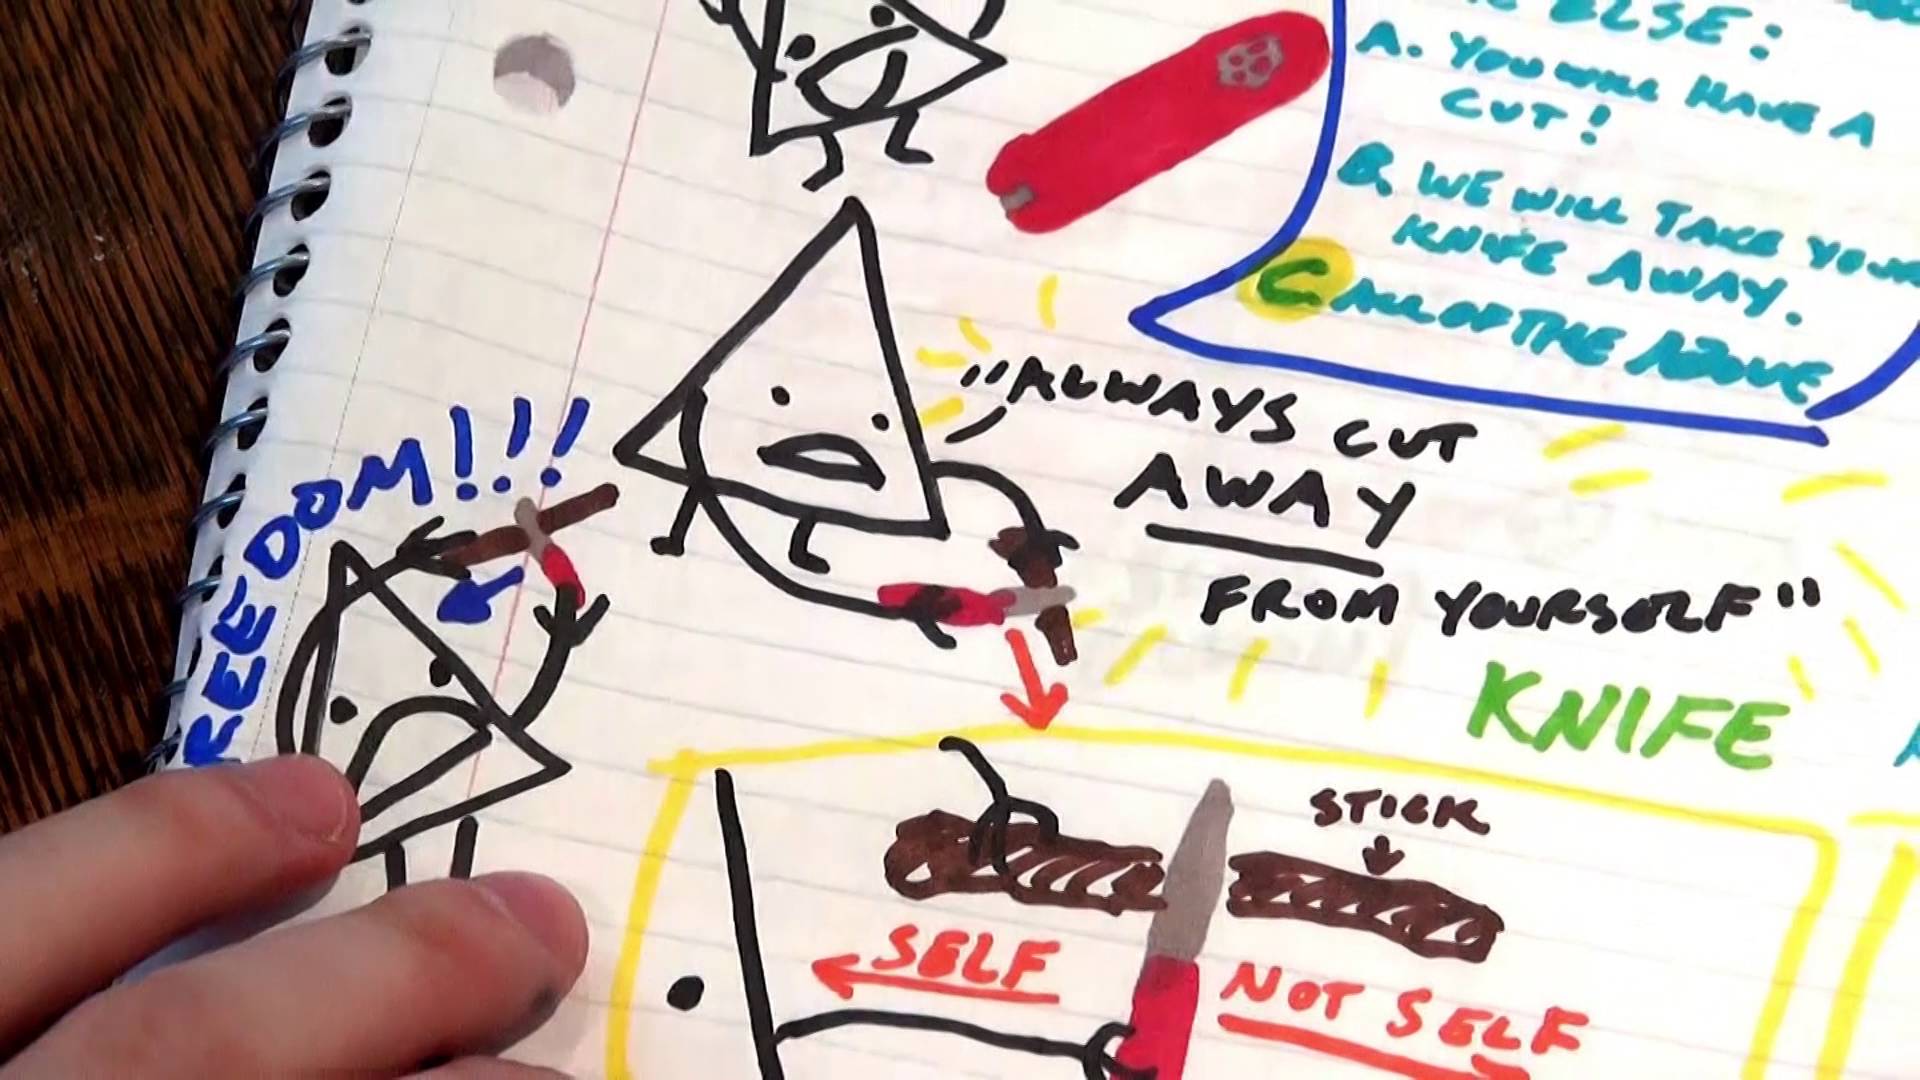 ELSE:
A. YOU WILL HAVE A
CUT!
B. WE WILL TAKE YOUR
KNIFE AWAY.
C ALL OF THE ABOVE
"ALWAYS CUT
AWAY
FROM YOURSELF"
REEDOM!!!
KNIFE
STICK
SELF
NOT SELF